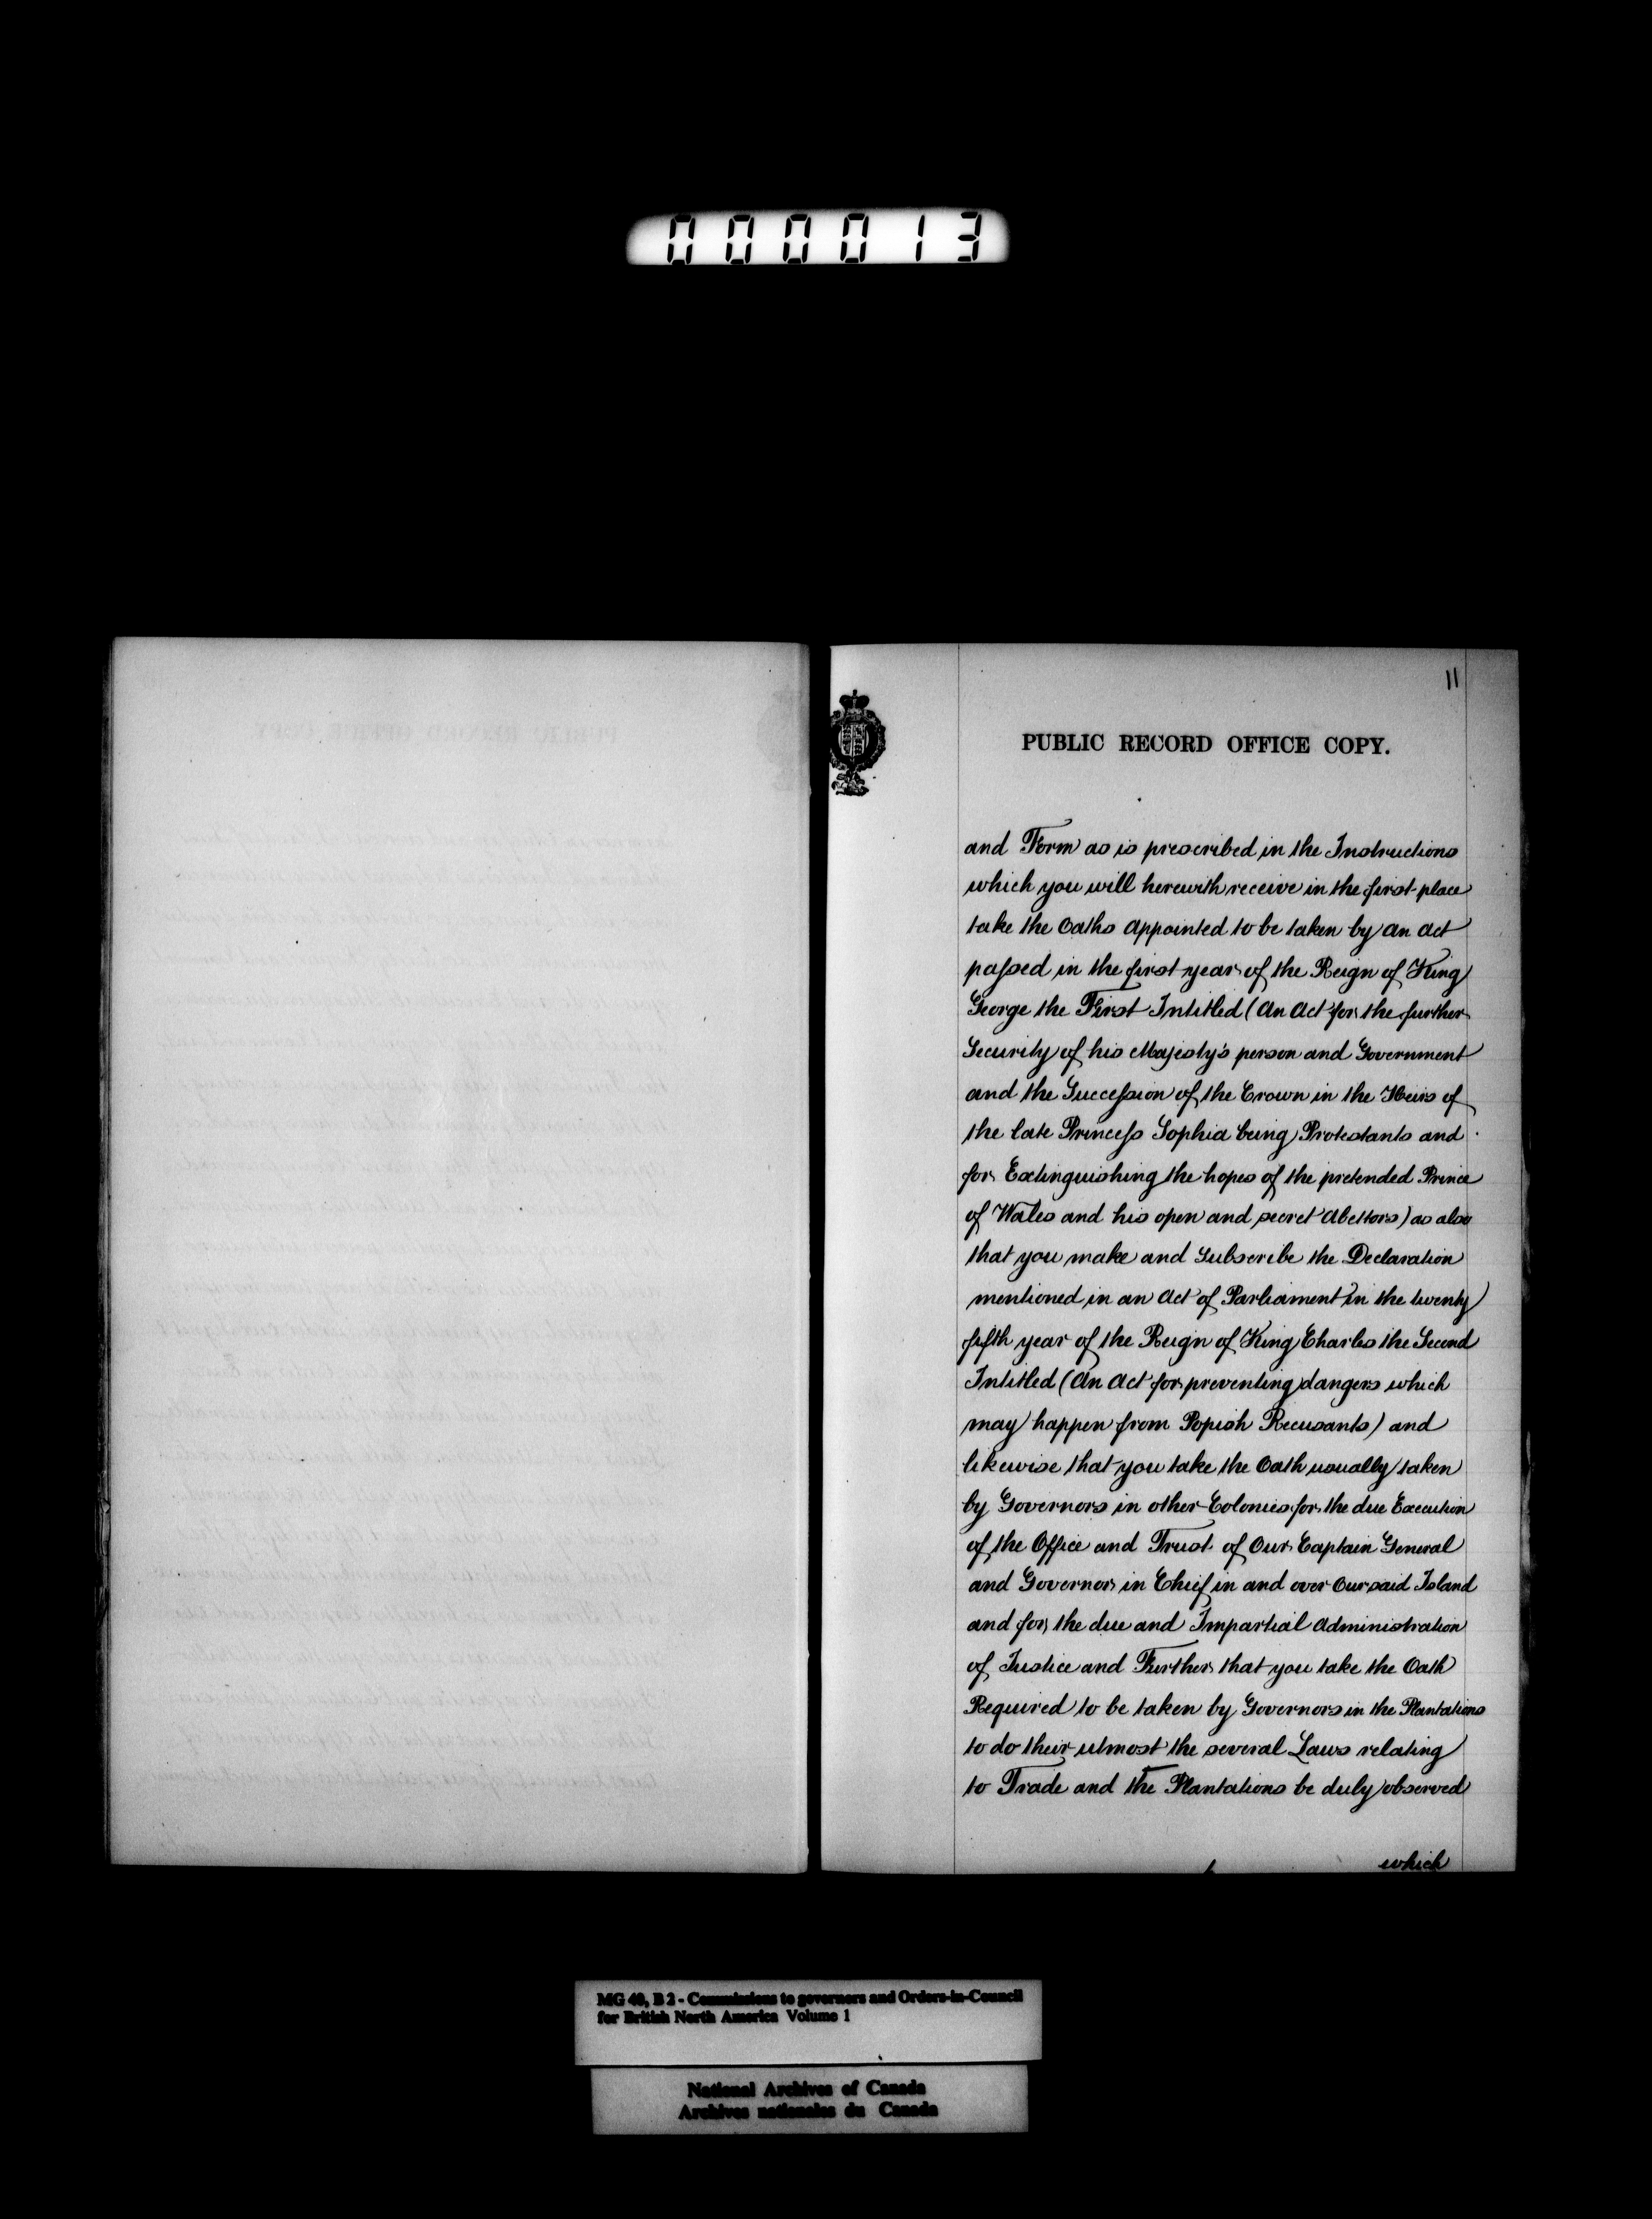 000013
11
PUBLIC RECORD OFFICE COPY.
and Form as is prescribed in the Instructions
which you will herewith receive in the first place
take the Oaths appointed to be taken by an Act
paſsed in the first year of the Reign of King
George the First Intitled (An Act for the further
Security of his Majesty's person and Government
and the Succeſsion of the Crown in the Heirs of
the late Princeſs Sophia being Protestants and
for Extinguishing the hopes of the pretended Prince
of Wales and his open and secret Abettors) as also
that you make and Subscribe the Declaration
mentioned in an Act of Parliament in the twenty
fifth year of the Reign of King Charles the Second
Intitled (An Act for preventing dangers which
may happen from Popish Recusants) and
likewise that you take the Oath usually taken
by Governors in other Colonies for the due Execution
of the Office and Trust of Our Captain General
and Governor in Chief in and over Our said Island
and for the due and Impartial Administration
of Justice and Further that you take the Oath
Required to be taken by Governors in the Plantations
to do their utmost the several Laws relating
to Trade and the Plantations be duly observed
which
MG 40, B 2 - Commissions to governors and Orders-in-Council
for British North America Volume 1
National Archives of Canada
Archives nationales du Canada